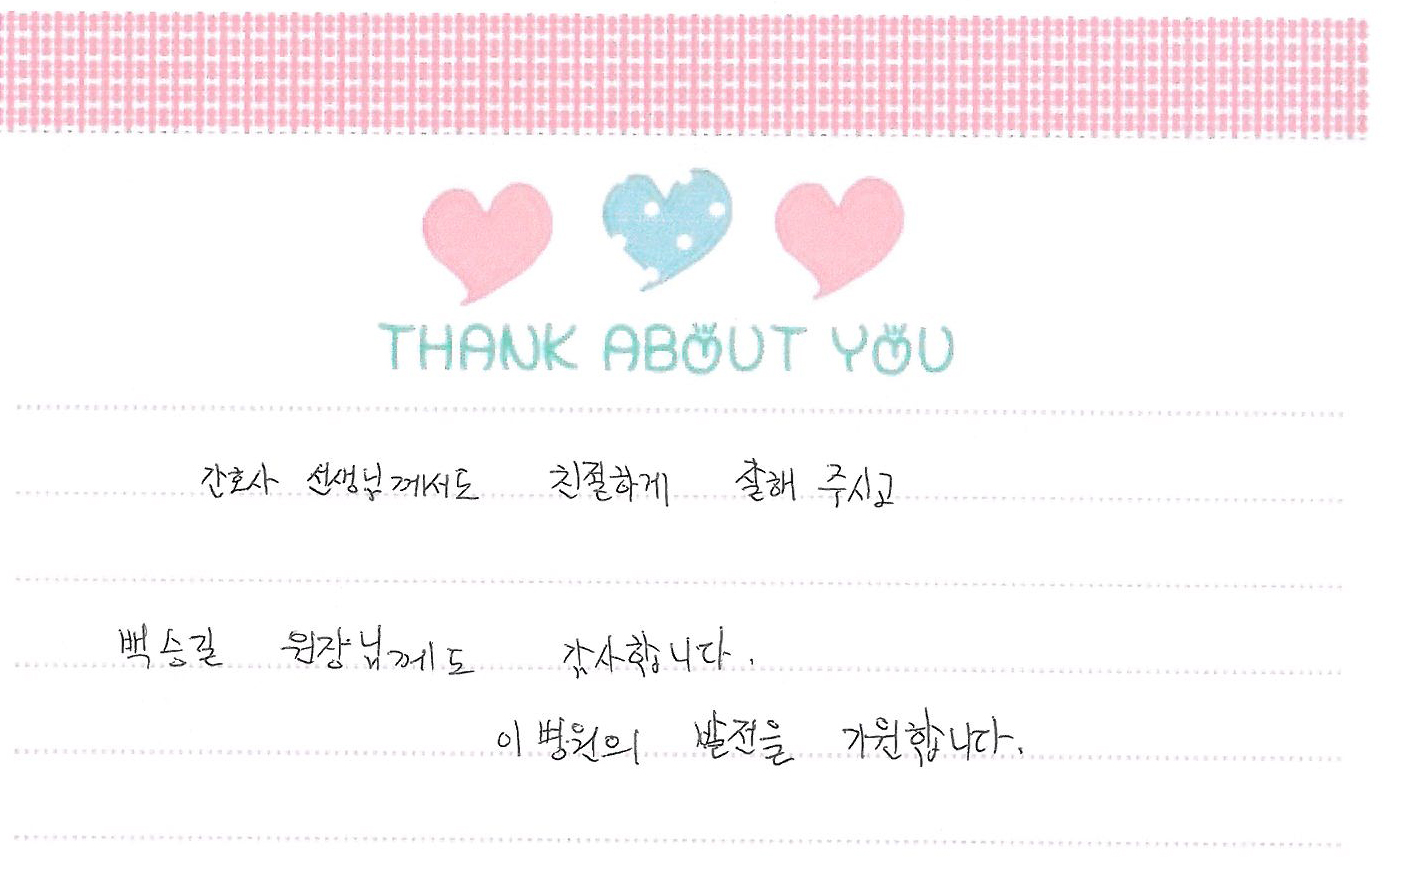 THANK ABOUT YOU
간호사 선생님께서도 친절하게 잘해 주시고
백승길 원장님께도 감사합니다.
이 병원의 발전을 기원합니다.